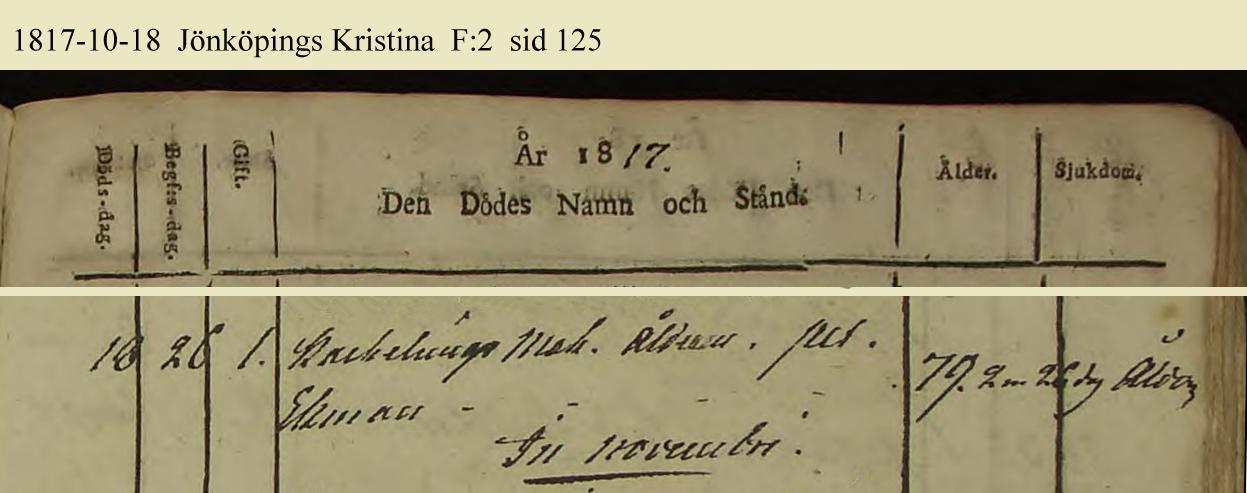 1817-10-18 Jönköpings Kristina F:2 sid 125
Döds-dag. Begfs-dag. Gift. År 1817. Ålder. Sjukdom.
Den Dödes Namn och Stånd.
18 26 1. Kackelungs Mak. Ålderm. Pet.
79. 2 m 26 dg Ålder
Ekman - - - -
In novembri.